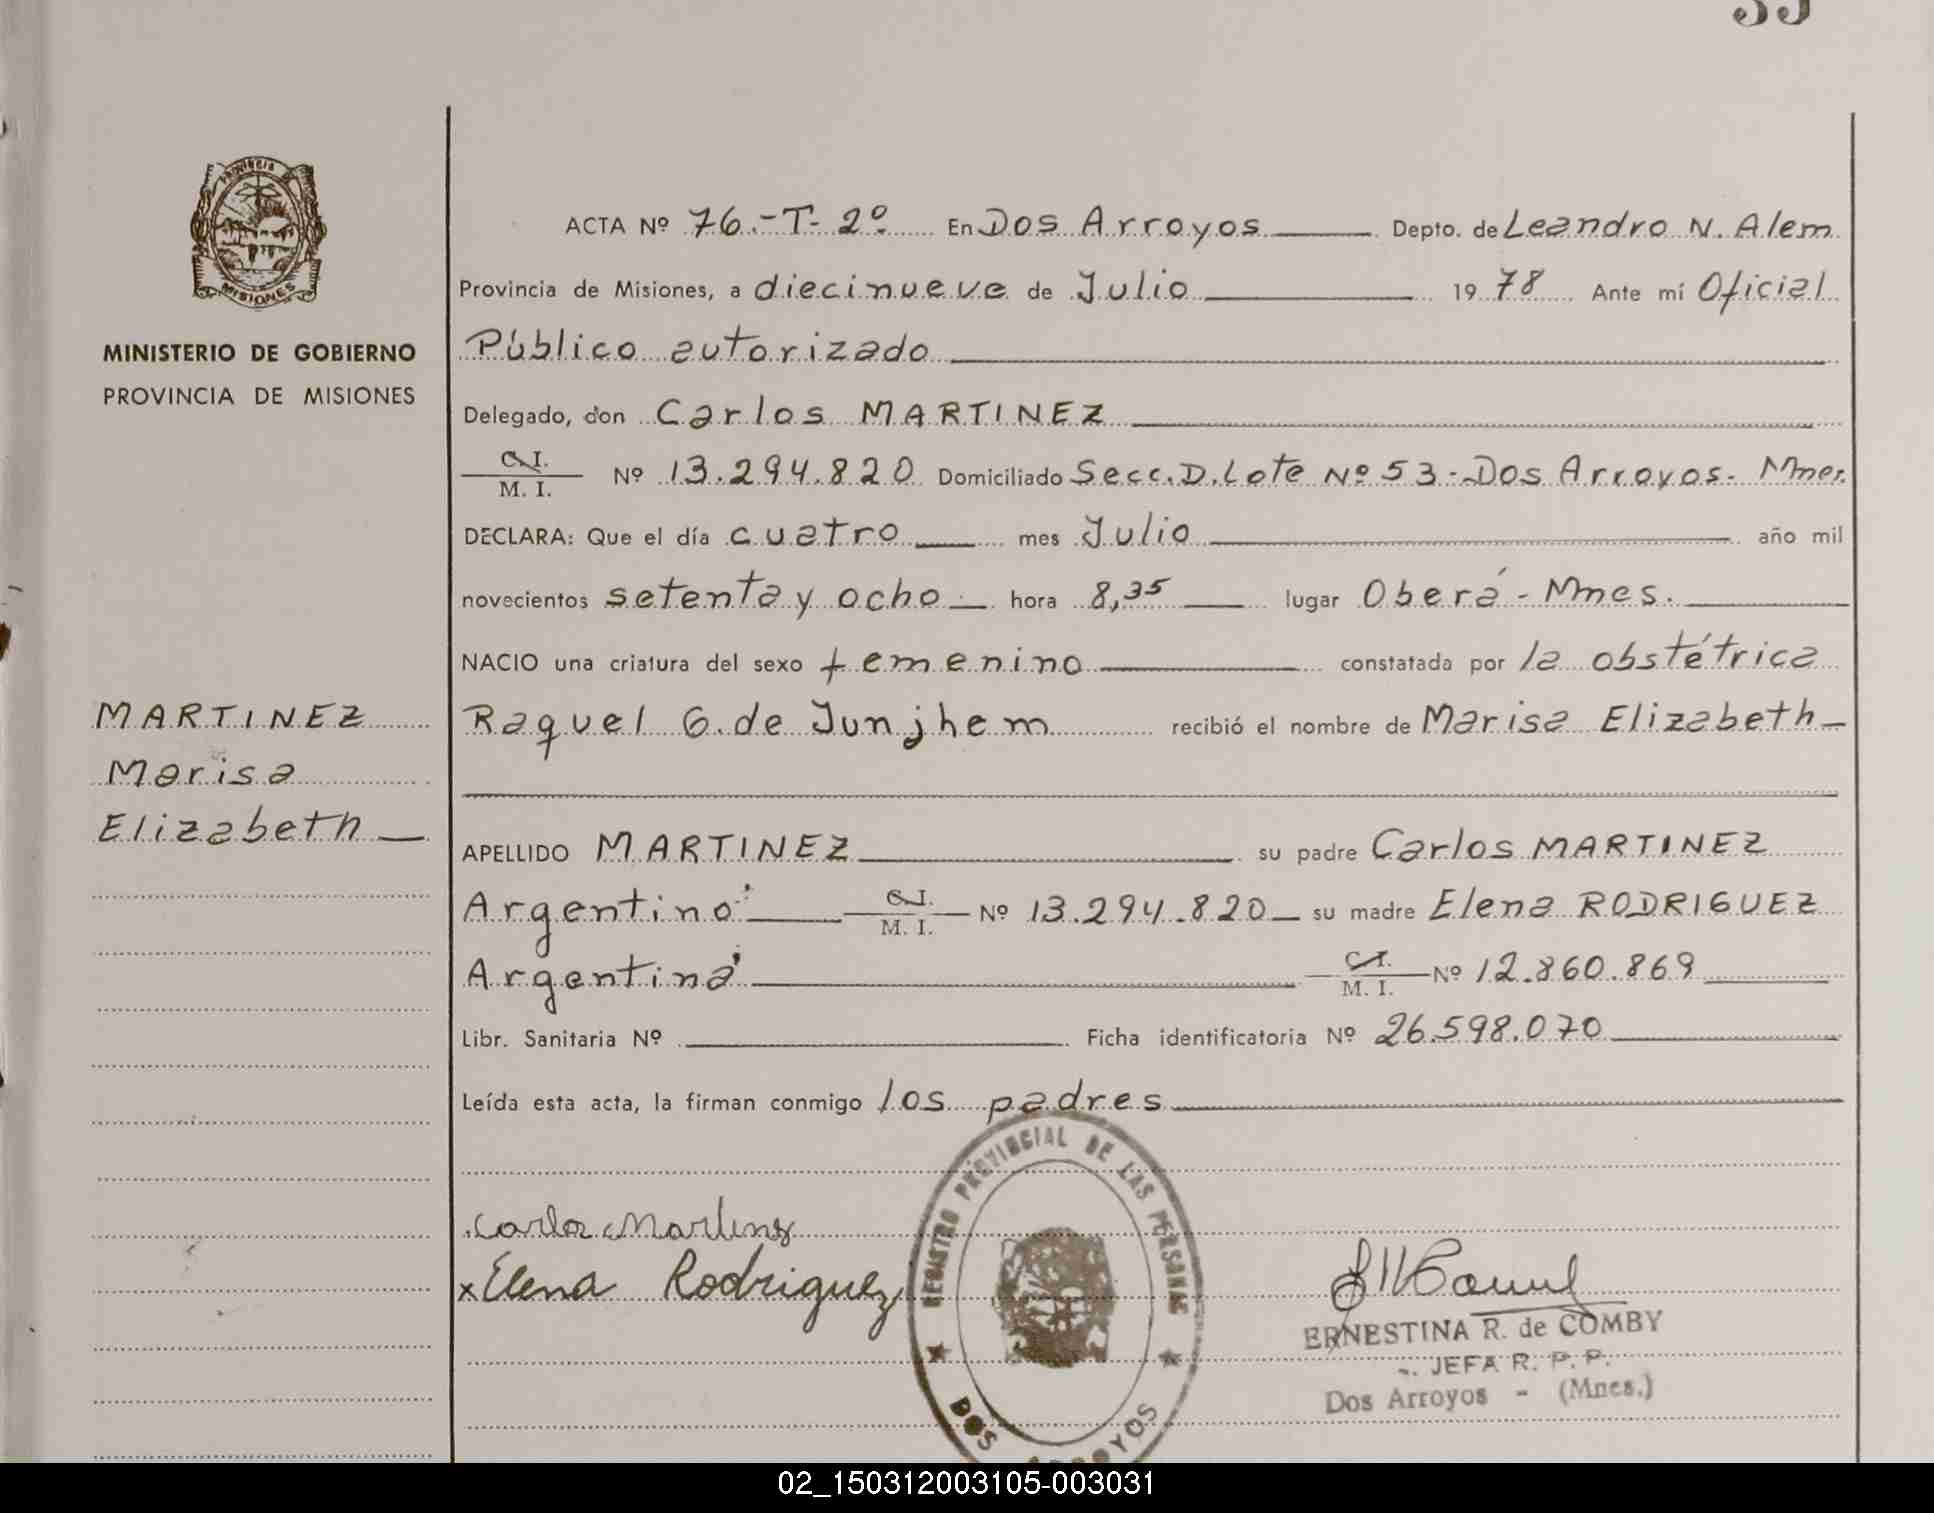 PROVINCIA
MISIONES
MINISTERIO DE GOBIERNO
PROVINCIA DE MISIONES
MARTINEZ
Marisa
Elizabeth
ACTA Nº 76.-T-2º En Dos Arroyos Depto. de Leandro N. Alem
Provincia de Misiones, a diecinueve de Julio 1978 Ante mí Oficial
Público autorizado
Delegado, don Carlos MARTINEZ
C.I. / M. I. Nº 13.294.820 Domiciliado Secc. D. Lote Nº 53-Dos Arroyos- Mnes.
DECLARA: Que el día cuatro mes Julio año mil
novecientos setenta y ocho hora 8,35 lugar Oberá-Mnes.
NACIO una criatura del sexo femenino constatada por la obstétrica
Raquel G. de Junjhem recibió el nombre de Marisa Elizabeth
APELLIDO MARTINEZ su padre Carlos MARTINEZ
Argentino C.I. / M. I. Nº 13.294.820 su madre Elena RODRIGUEZ
Argentina C.I. / M. I. Nº 12.860.869
Libr. Sanitaria Nº Ficha identificatoria Nº 26.598.070
Leída esta acta, la firman conmigo los padres
REGISTRO PROVINCIAL DE LAS PERSONAS
DOS ARROYOS
Carlos Martinez
x Elena Rodriguez
ERNESTINA R. de COMBY
JEFA R. P. P.
Dos Arroyos - (Mnes.)
02_150312003105-003031